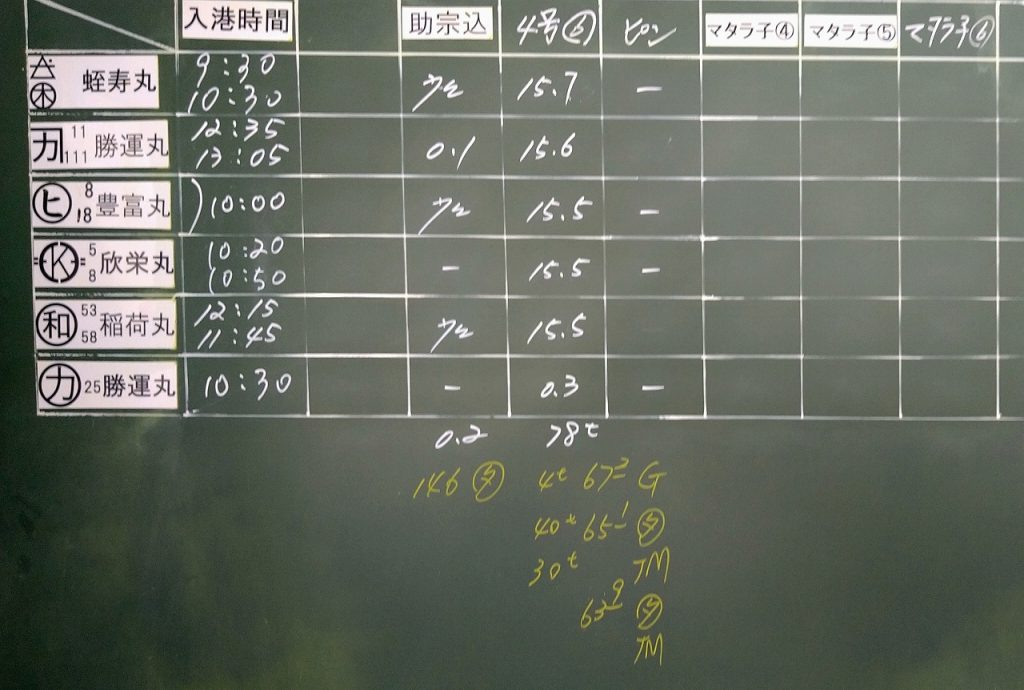 入港時間 助宗込 4号⑥ ピン マタラ子④ マタラ子⑤ マタラ子⑥
㊍ 蛭寿丸 9:30 10:30 少 15.7 ー
力 11 111 勝運丸 12:35 13:05 0.1 15.6
ヒ 8 18 豊富丸 )10:00 少 15.5 ー
K 5 8 欣栄丸 10:20 10:50 ー 15.5 ー
和 53 58 稲荷丸 12:15 11:45 少 15.5
力 25 勝運丸 10:30 ー 0.3 ー
0.2 78t
146 タ 4t 67 2 G
40t 65 1 タ
30t TM
63 9 タ
TM